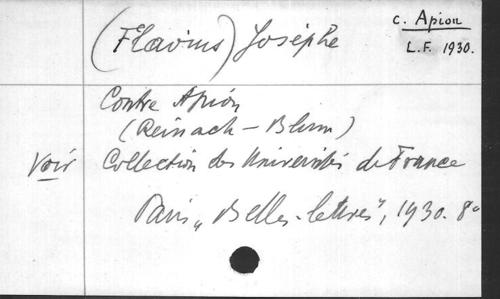 (Flavius) Josèphe
c. Apion
L.F. 1930.
Contre Apion
(Reinach - Blum)
Voir Collection des Universités de France
Paris, „Belles-lettres”, 1930. 8°